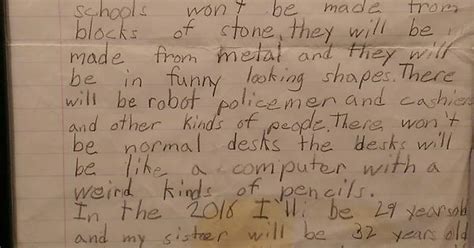 schools won't be made from
blocks of stone, they will be
made from metal and they will
be in funny looking shapes. There
will be robot policemen and cashiers
and other kinds of people. There won't
be normal desks the desks will
be like a computer with a
weird kinds of pencils.
In the 2016 I'll be 29 years old
and my sister will be 32 years old